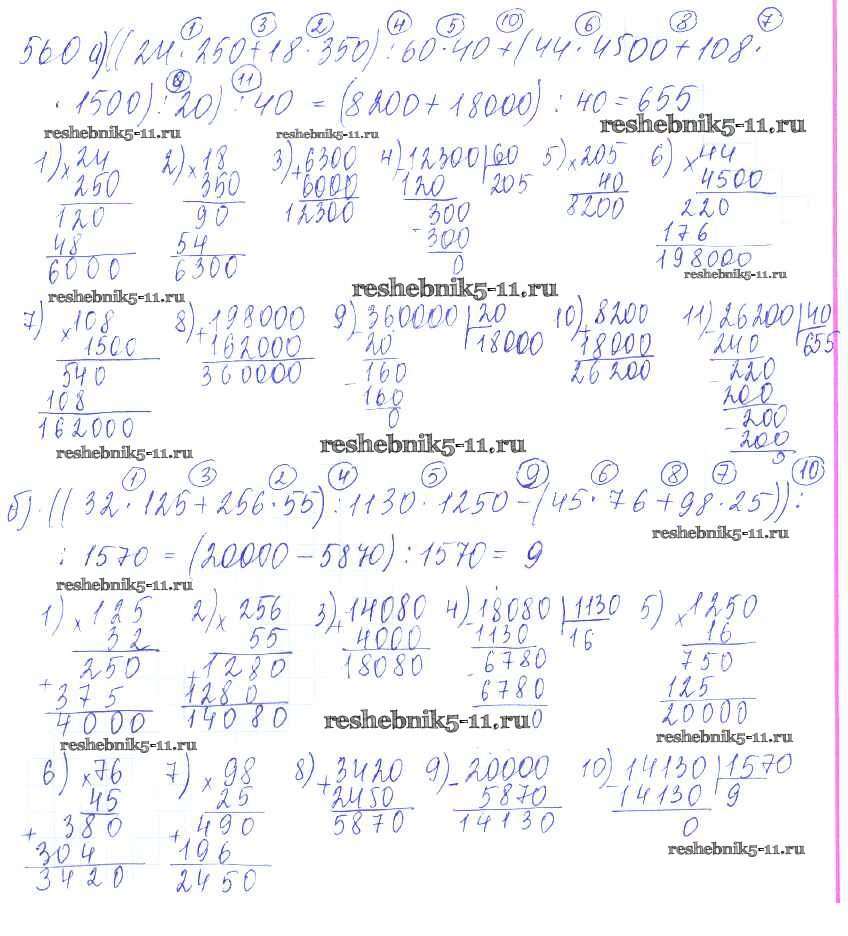 ① ③ ② ④ ⑤ ⑩ ⑥ ⑧ ⑦
560 а) ((24 · 250 + 18 · 350) : 60 · 40 + (44 · 4500 + 108 ·
⑨ ⑪
· 1500) : 20) : 40 = (8200 + 18000) : 40 = 655
reshebnik5-11.ru reshebnik5-11.ru reshebnik5-11.ru
1) × 24 2) × 18 3) + 6300 4) - 12300 | 60 5) × 205 6) × 44
250 350 6000 120 205 40 4500
120 90 12300 300 8200 220
48 54 - 300 176
6000 6300 0 198000
reshebnik5-11.ru reshebnik5-11.ru reshebnik5-11.ru
7) × 108 8) + 198000 9) - 360000 | 20 10) + 8200 11) - 26200 | 40
1500 162000 20 18000 18000 240 655
540 360000 - 160 26200 - 220
108 160 200
162000 0 - 200
200
0
reshebnik5-11.ru reshebnik5-11.ru
① ③ ② ④ ⑤ ⑨ ⑥ ⑧ ⑦ ⑩
б) ((32 · 125 + 256 · 55) : 1130 · 1250 - (45 · 76 + 98 · 25)) :
reshebnik5-11.ru
: 1570 = (20000 - 5870) : 1570 = 9
reshebnik5-11.ru
1) × 125 2) × 256 3) + 14080 4) - 18080 | 1130 5) × 1250
32 55 4000 1130 16 16
+ 250 + 1280 18080 - 6780 750
375 1280 6780 125
4000 14080 0 20000
reshebnik5-11.ru reshebnik5-11.ru reshebnik5-11.ru
6) × 76 7) × 98 8) + 3420 9) - 20000 10) - 14130 | 1570
45 25 2450 5870 14130 9
+ 380 + 490 5870 14130 0
304 196
3420 2450
reshebnik5-11.ru